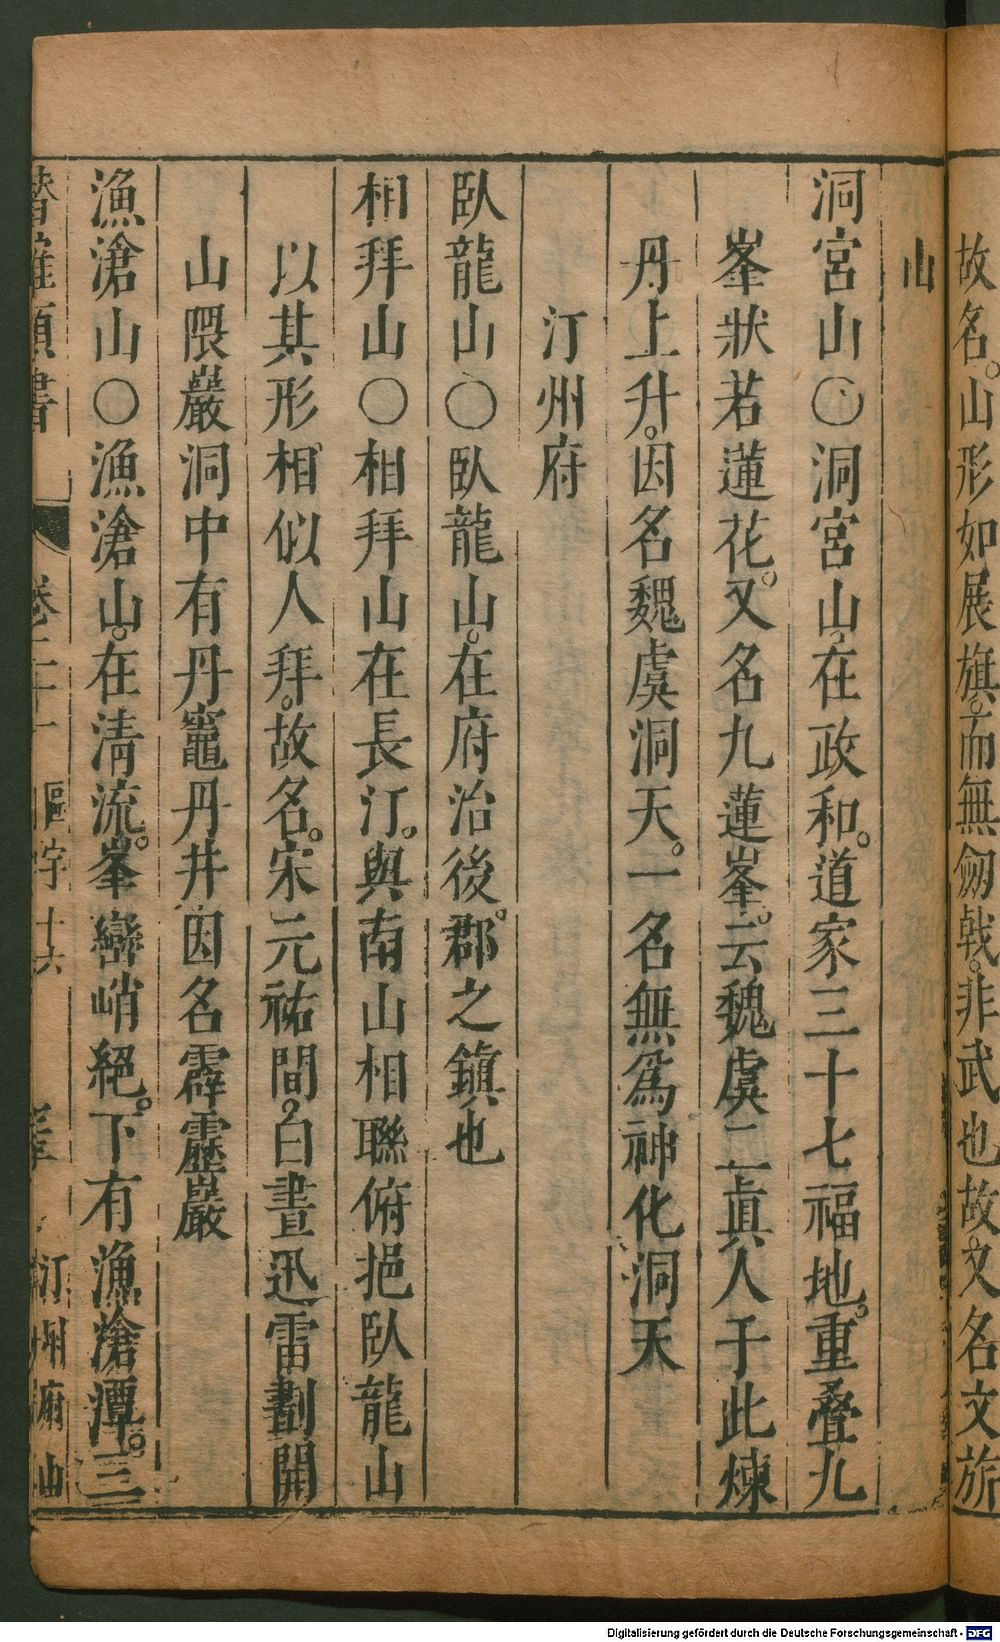 故名。山形如展旗。而無劒戟。非武也故又名文旂
山
洞宮山○洞宮山。在政和。道家三十七福地。重疊九
峯狀若蓮花。又名九蓮峯。云魏虞二眞人于此煉
丹上升。因名魏虞洞天。一名無爲神化洞天
汀州府
臥龍山○臥龍山。在府治後。郡之鎮也
相拜山○相拜山在長汀。與南山相聯俯挹臥龍山
以其形相似人拜。故名。宋元祐間。白晝迅雷劃開
山隈巖洞中有丹竈丹井因名霹靂巖
漁滄山○漁滄山。在清流。峯巒峭絕。下有漁滄潭。三
類書 卷二十一 區宇十六 汀州府山
Digitalisierung gefördert durch die Deutsche Forschungsgemeinschaft - DFG